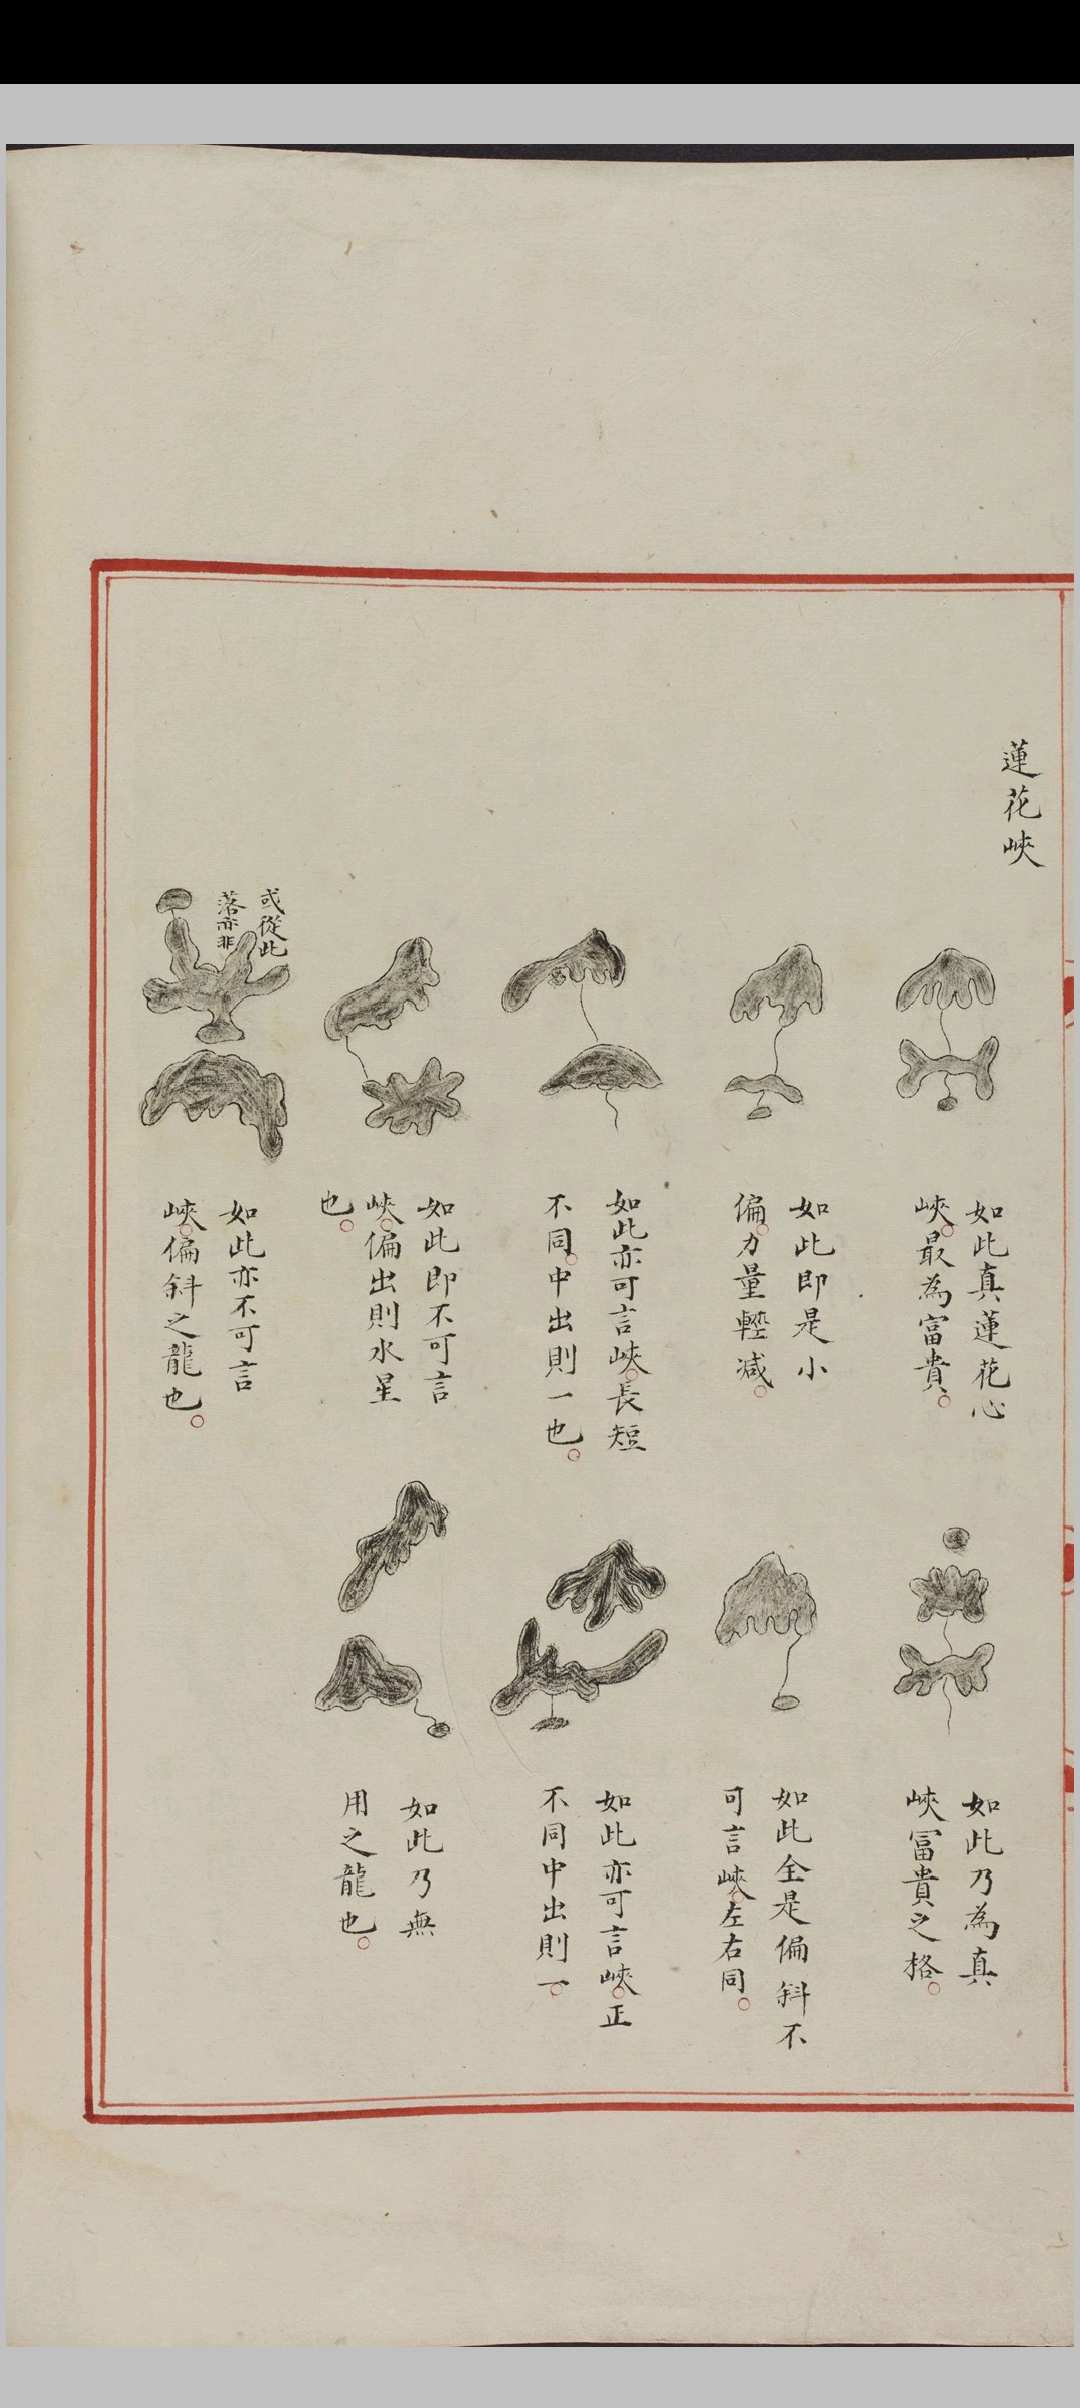 蓮花峽
如此真蓮花心
峽。最為富貴。
如此即是小
偏。力量輕減。
如此亦可言峽。長短
不同。中出則一也。
如此即不可言
峽。偏出則水星
也。
或從此
落亦非
如此亦不可言
峽。偏斜之龍也。
如此乃為真
峽富貴之格。
如此全是偏斜不
可言峽。左右同。
如此亦可言峽。正
不同中出則一。
如此乃無
用之龍也。